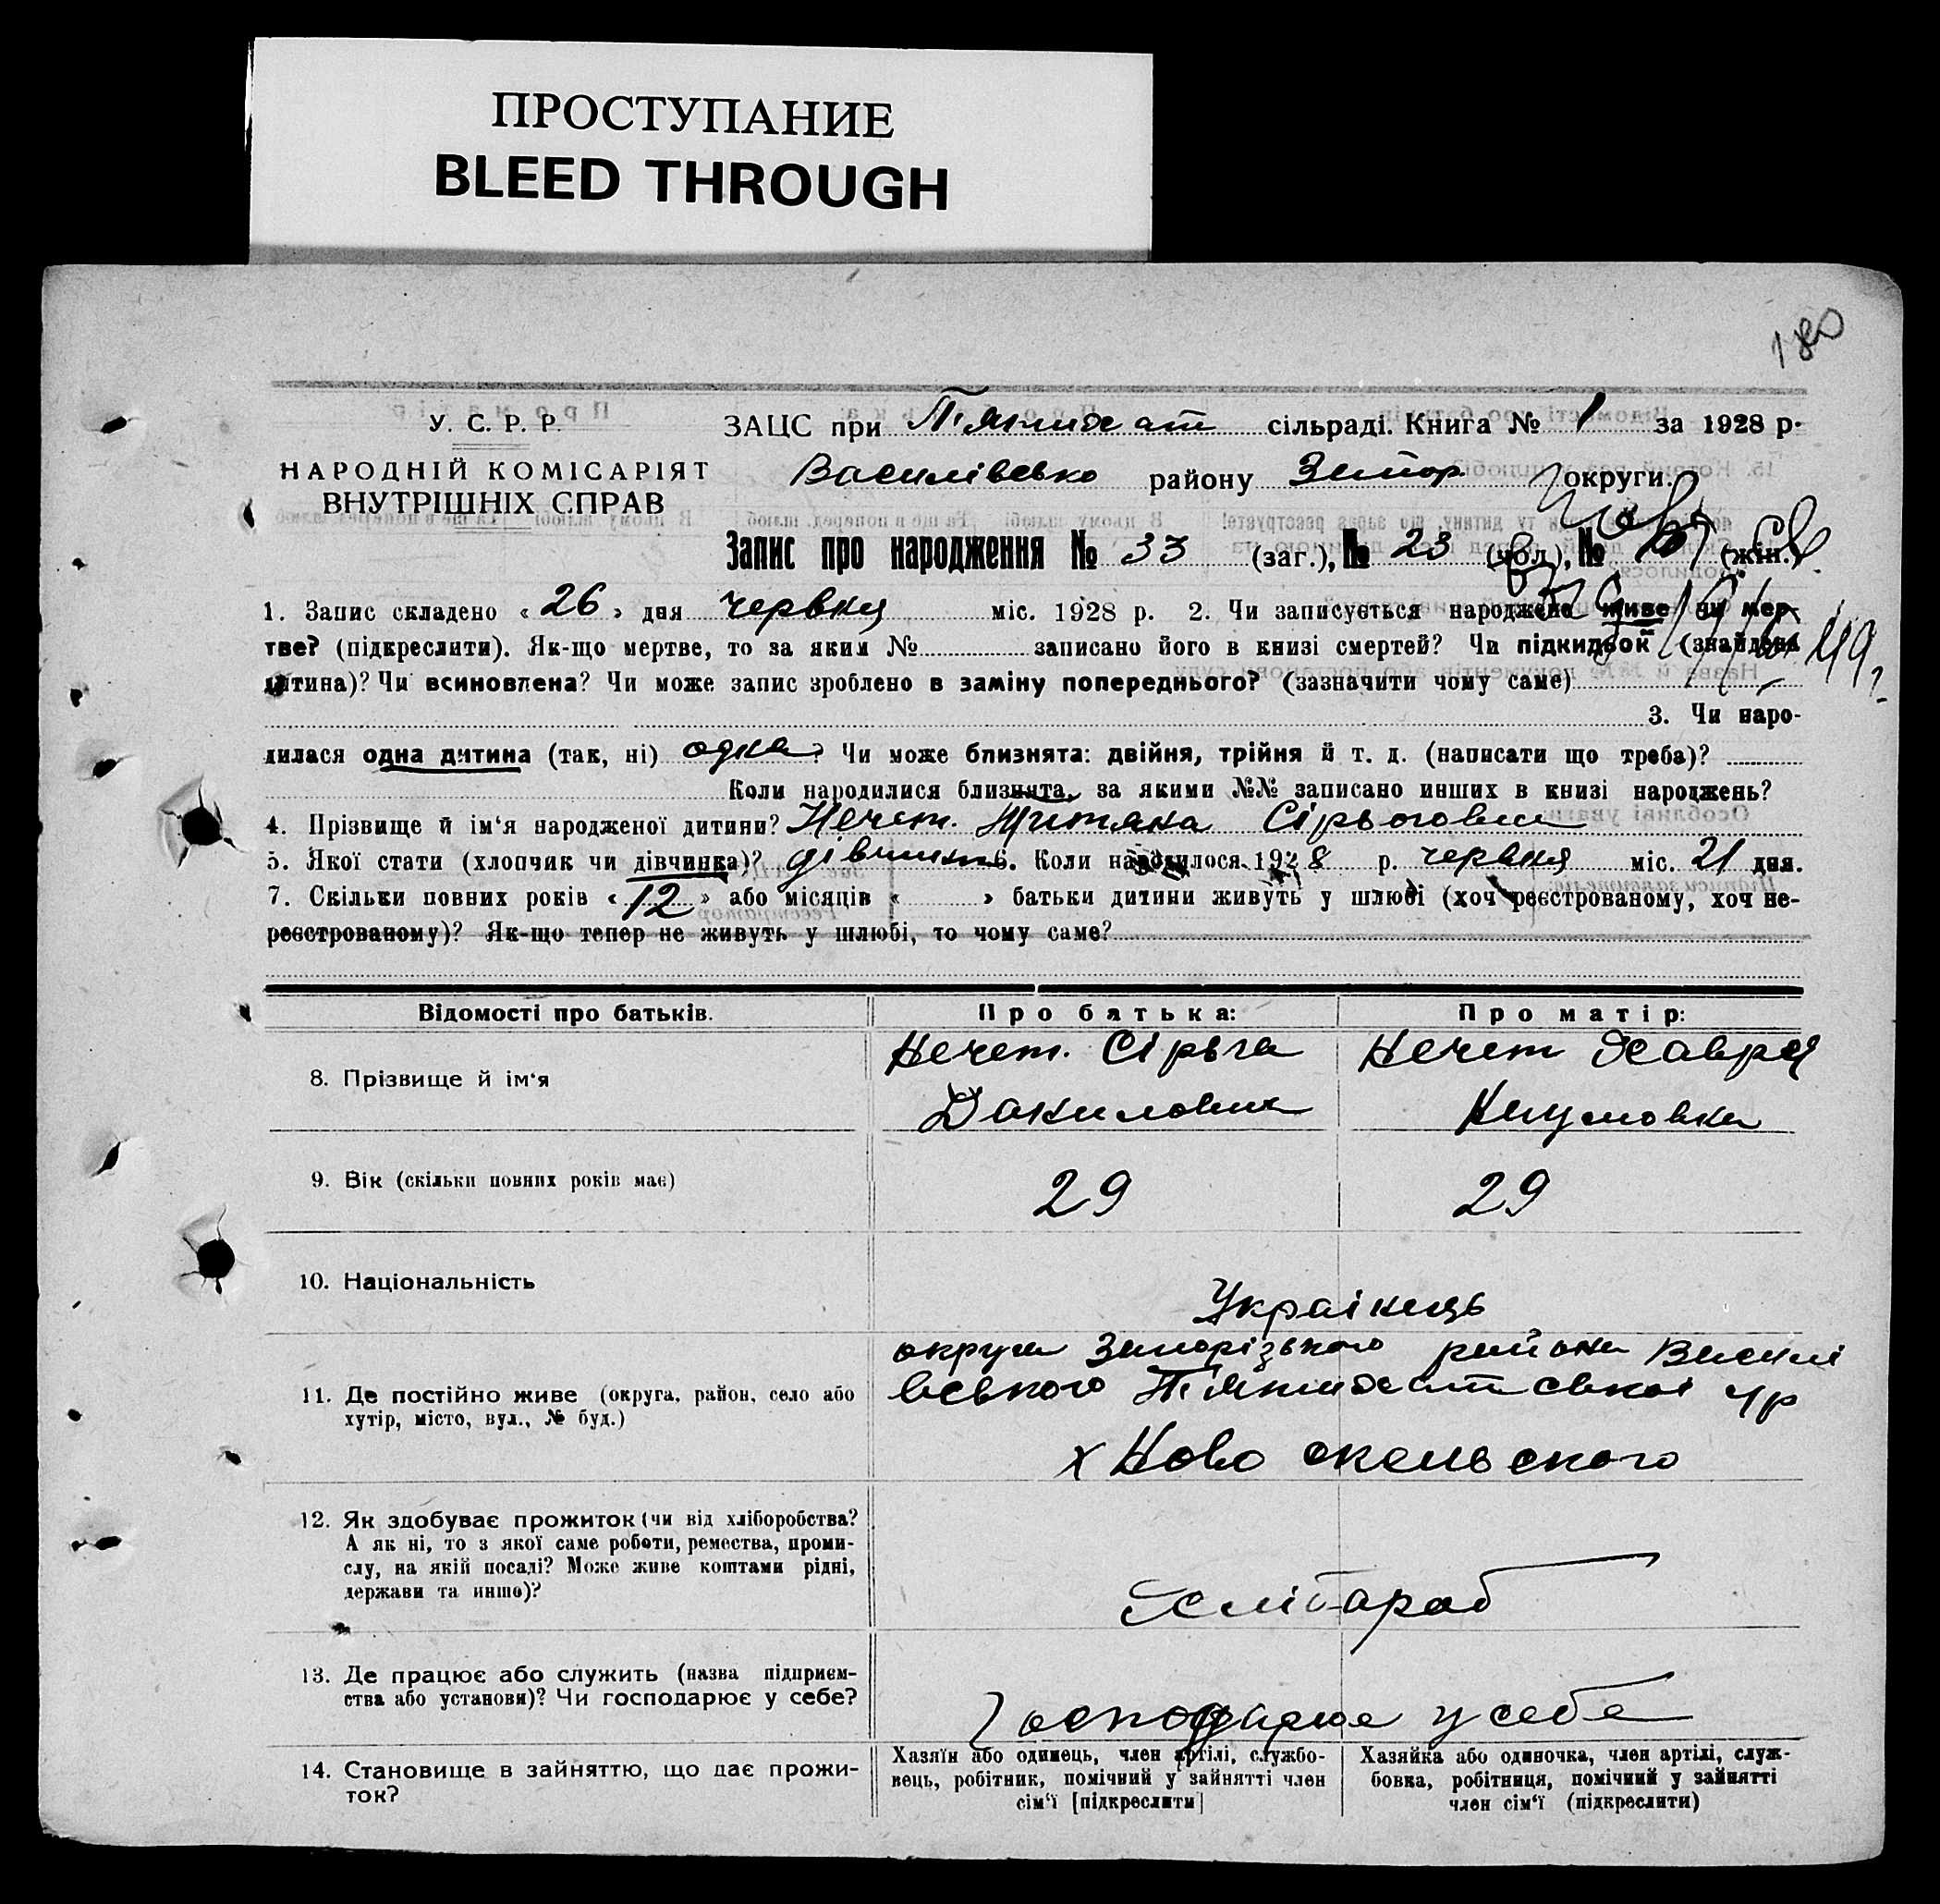 ПРОСТУПАНИЕ
BLEED THROUGH
180
У. С. Р. Р.
НАРОДНІЙ КОМІСАРІЯТ
ВНУТРІШНІХ СПРАВ
ЗАЦС при П'ятихат сільраді. Книга № 1 за 1928 р.
Василівсько району Запор. округи.
Запис про народження № 33 (заг.), № 23 (чол.), № (жін.)
1. Запис складено « 26 » дня червня міс. 1928 р. 2. Чи записується народжене живе чи мер-
тве? (підкреслити). Як-що мертве, то за яким № записано його в книзі смертей? Чи підкидьок (знайдена
дитина)? Чи всиновлена? Чи може запис зроблено в заміну попереднього? (зазначити чому саме)
3. Чи наро-
дилася одна дитина (так, ні) одна? Чи може близнята: двійня, трійня й т. д. (написати що треба)?
Коли народилися близнята, за якими №№ записано инших в книзі народжень?
4. Прізвище й ім'я народженої дитини? Нечет. Сірьговна
5. Якої стати (хлопчик чи дівчинка)? дівчинка 6. Коли народилося 1928 р. червня міс. 21 дня.
7. Скільки повних років « 12 » або місяців « » батьки дитини живуть у шлюбі (хоч реєстрованому, хоч не-
реєстрованому)? Як-що тепер не живуть у шлюбі, то чому саме?
Відомості про батьків. Про батька: Про матір:
8. Прізвище й ім'я
Нечет. Сірьга
Данилович
Нечет
Наумовна
9. Вік (скільки повних років має) 29 29
10. Національність Українець
11. Де постійно живе (округа, район, село або
хутір, місто, вул., № буд.)
округа Запорізького района Василі
вського П'ятихатської
х Ново
12. Як здобуває прожиток (чи від хліборобства?
А як ні, то з якої саме роботи, ремества, проми-
слу, на якій посаді? Може живе коштами рідні,
держави та инше)?
Хлібароб
13. Де працює або служить (назва підприєм-
ства або установи)? Чи господарює у себе?
Господарює у себе
14. Становище в зайняттю, що дає прожи-
ток?
Хазяїн або одинець, член артілі, службо-
вець, робітник, помічний у зайнятті член
сім'ї [підкреслити]
Хазяйка або одиночка, член артілі, служ-
бовка, робітниця, помічний у зайнятті
член сім'ї (підкреслити)